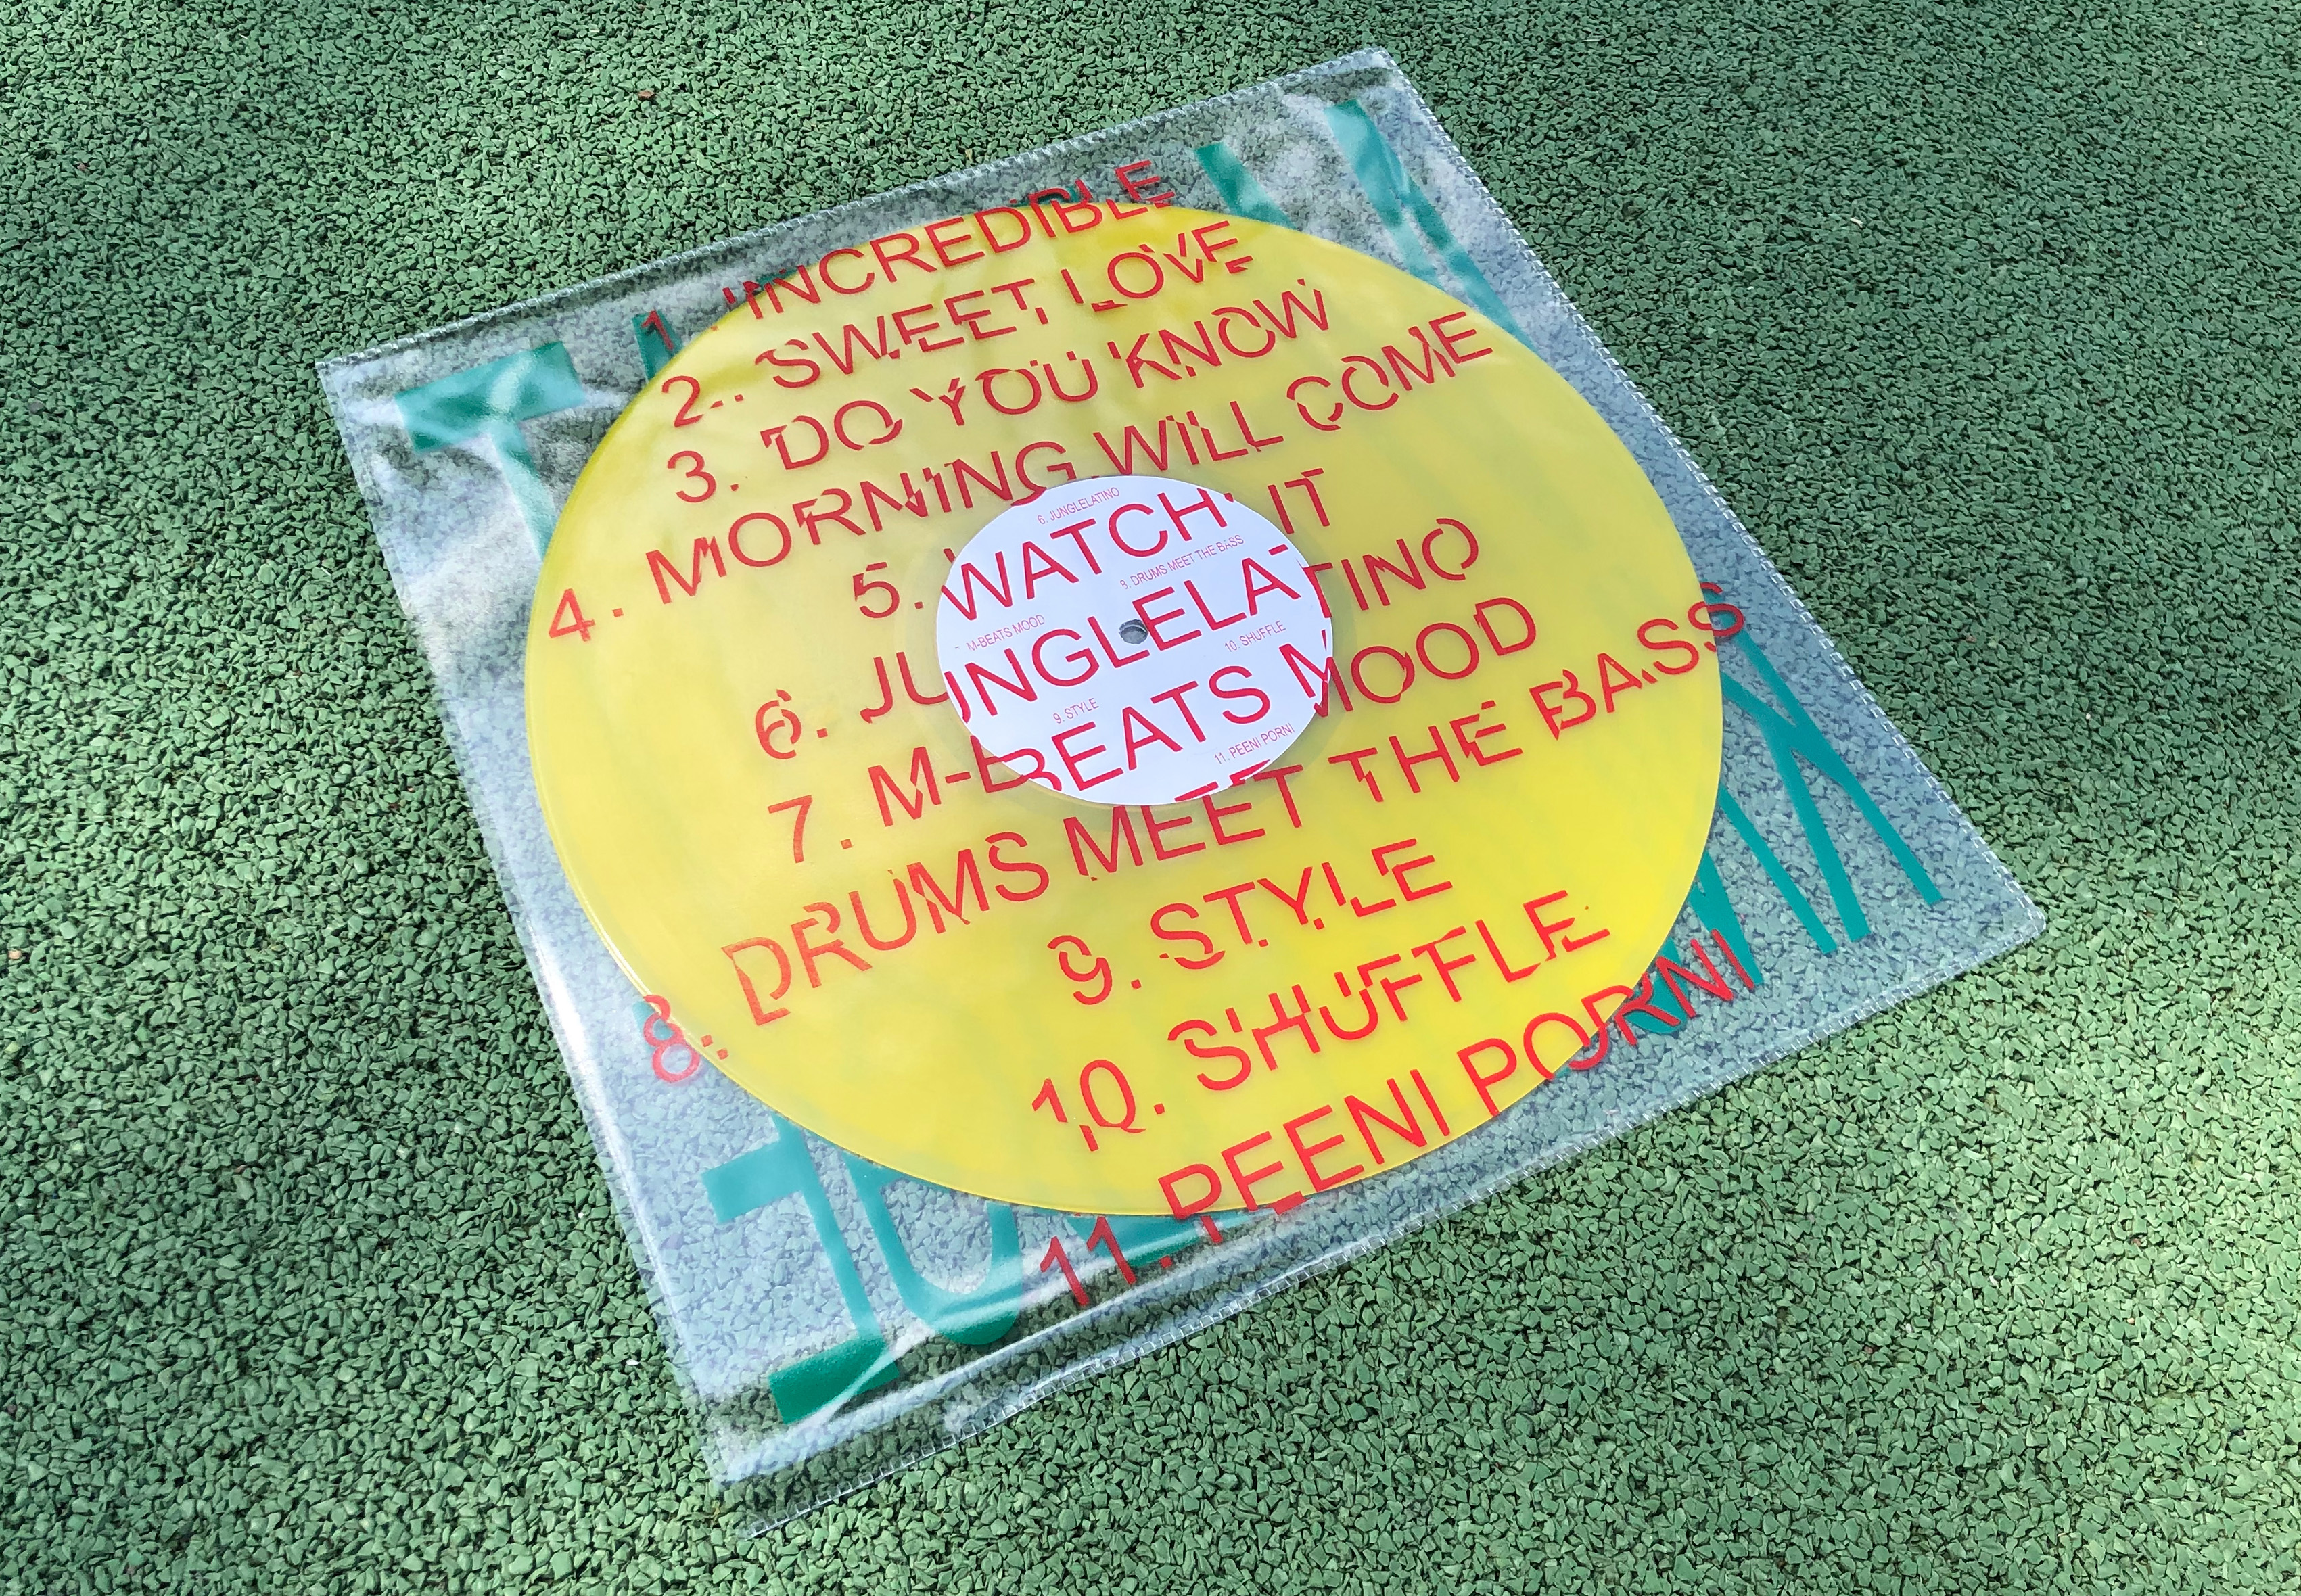 1. INCREDIBLE
2. SWEET LOVE
3. DO YOU KNOW
4. MORNING WILL COME
5. WATCH IT
6. JUNGLELATINO
7. M-BEATS MOOD
8. DRUMS MEET THE BASS
9. STYLE
10. SHUFFLE
11. PEENI PORNI
6. JUNGLELATINO
8. DRUMS MEET THE BASS
M-BEATS MOOD
10. SHUFFLE
9. STYLE
11. PEENI PORNI